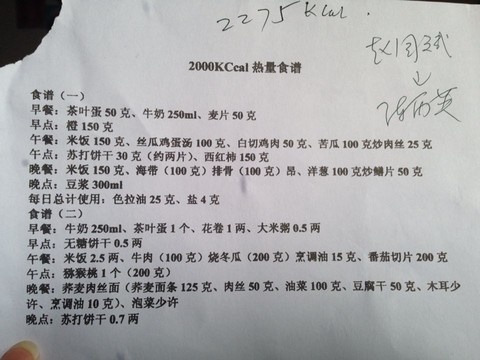 2275 Kcal.
2000KCcal 热量食谱
食谱（一）
早餐：茶叶蛋 50 克、牛奶 250ml、麦片 50 克
早点：橙 150 克
午餐：米饭 150 克、丝瓜鸡蛋汤 100 克、白切鸡肉 50 克、苦瓜 100 克炒肉丝 25 克
午点：苏打饼干 30 克（约两片）、西红柿 150 克
晚餐：米饭 150 克、海带（100 克）排骨（100 克）昂、洋葱 100 克炒鳝片 50 克
晚点：豆浆 300ml
每日总计使用：色拉油 25 克、盐 4 克
食谱（二）
早餐：牛奶 250ml、茶叶蛋 1 个、花卷 1 两、大米粥 0.5 两
早点：无糖饼干 0.5 两
午餐：米饭 2.5 两、牛肉（100 克）烧冬瓜（200 克）烹调油 15 克、番茄切片 200 克
午点：猕猴桃 1 个（200 克）
晚餐：荞麦肉丝面（荞麦面条 125 克、肉丝 50 克、油菜 100 克、豆腐干 50 克、木耳少
许、烹调油 10 克）、泡菜少许
晚点：苏打饼干 0.7 两